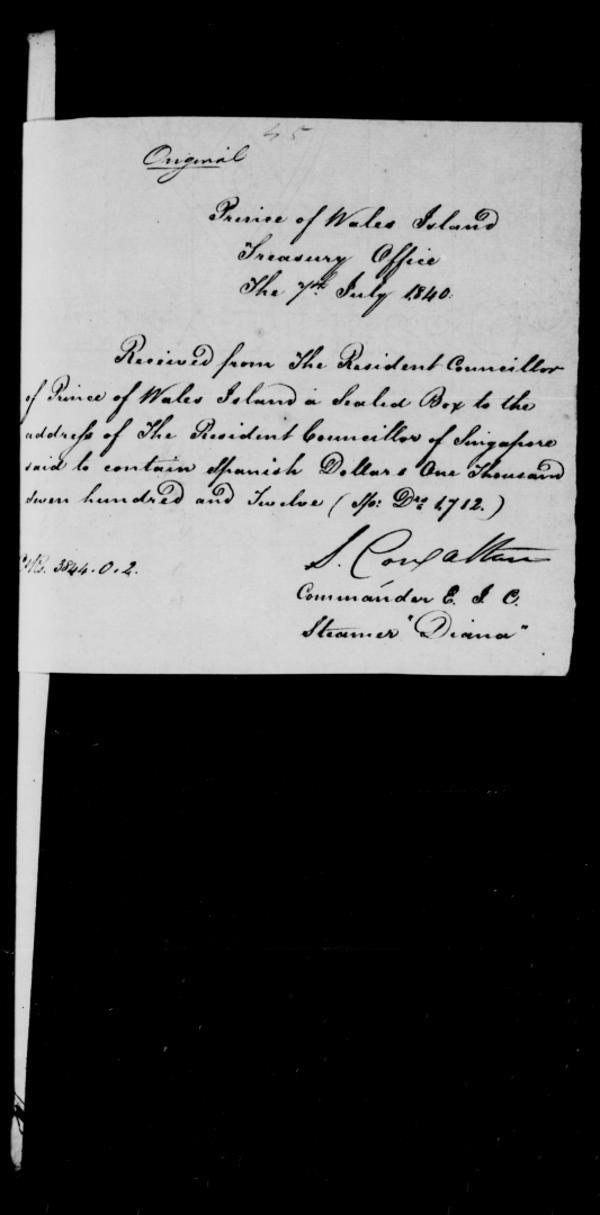 45
Original
Prince of Wales Island
Treasury Office
The 7th July 1840.
Received from The Resident Councillor
of Prince of Wales Island a Sealed Box to the
address of The Resident Councillor of Singapore
said to contain Spanish Dollars One Thousand
seven hundred and Twelve (Sp: Drs 1,712.)
3844.0.2.
S. Congalton
Commander E. I. C.
Steamer "Diana"